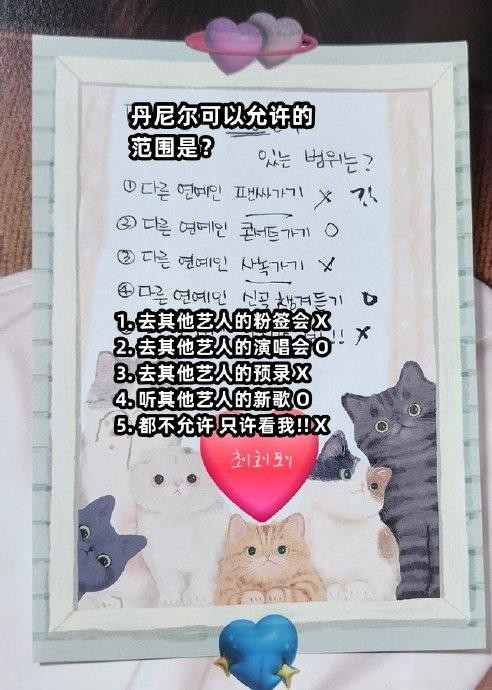 丹尼尔可以允许的
范围是？
있는 범위는?
① 다른 연예인 팬싸가기 X
② 다른 연예인 콘서트가기 O
③ 다른 연예인 사녹가기 X
④ 다른 연예인 신곡 챙겨듣기 O
1. 去其他艺人的粉签会 X
2. 去其他艺人的演唱会 O
3. 去其他艺人的预录 X
4. 听其他艺人的新歌 O
!! X
5. 都不允许 只许看我!! X